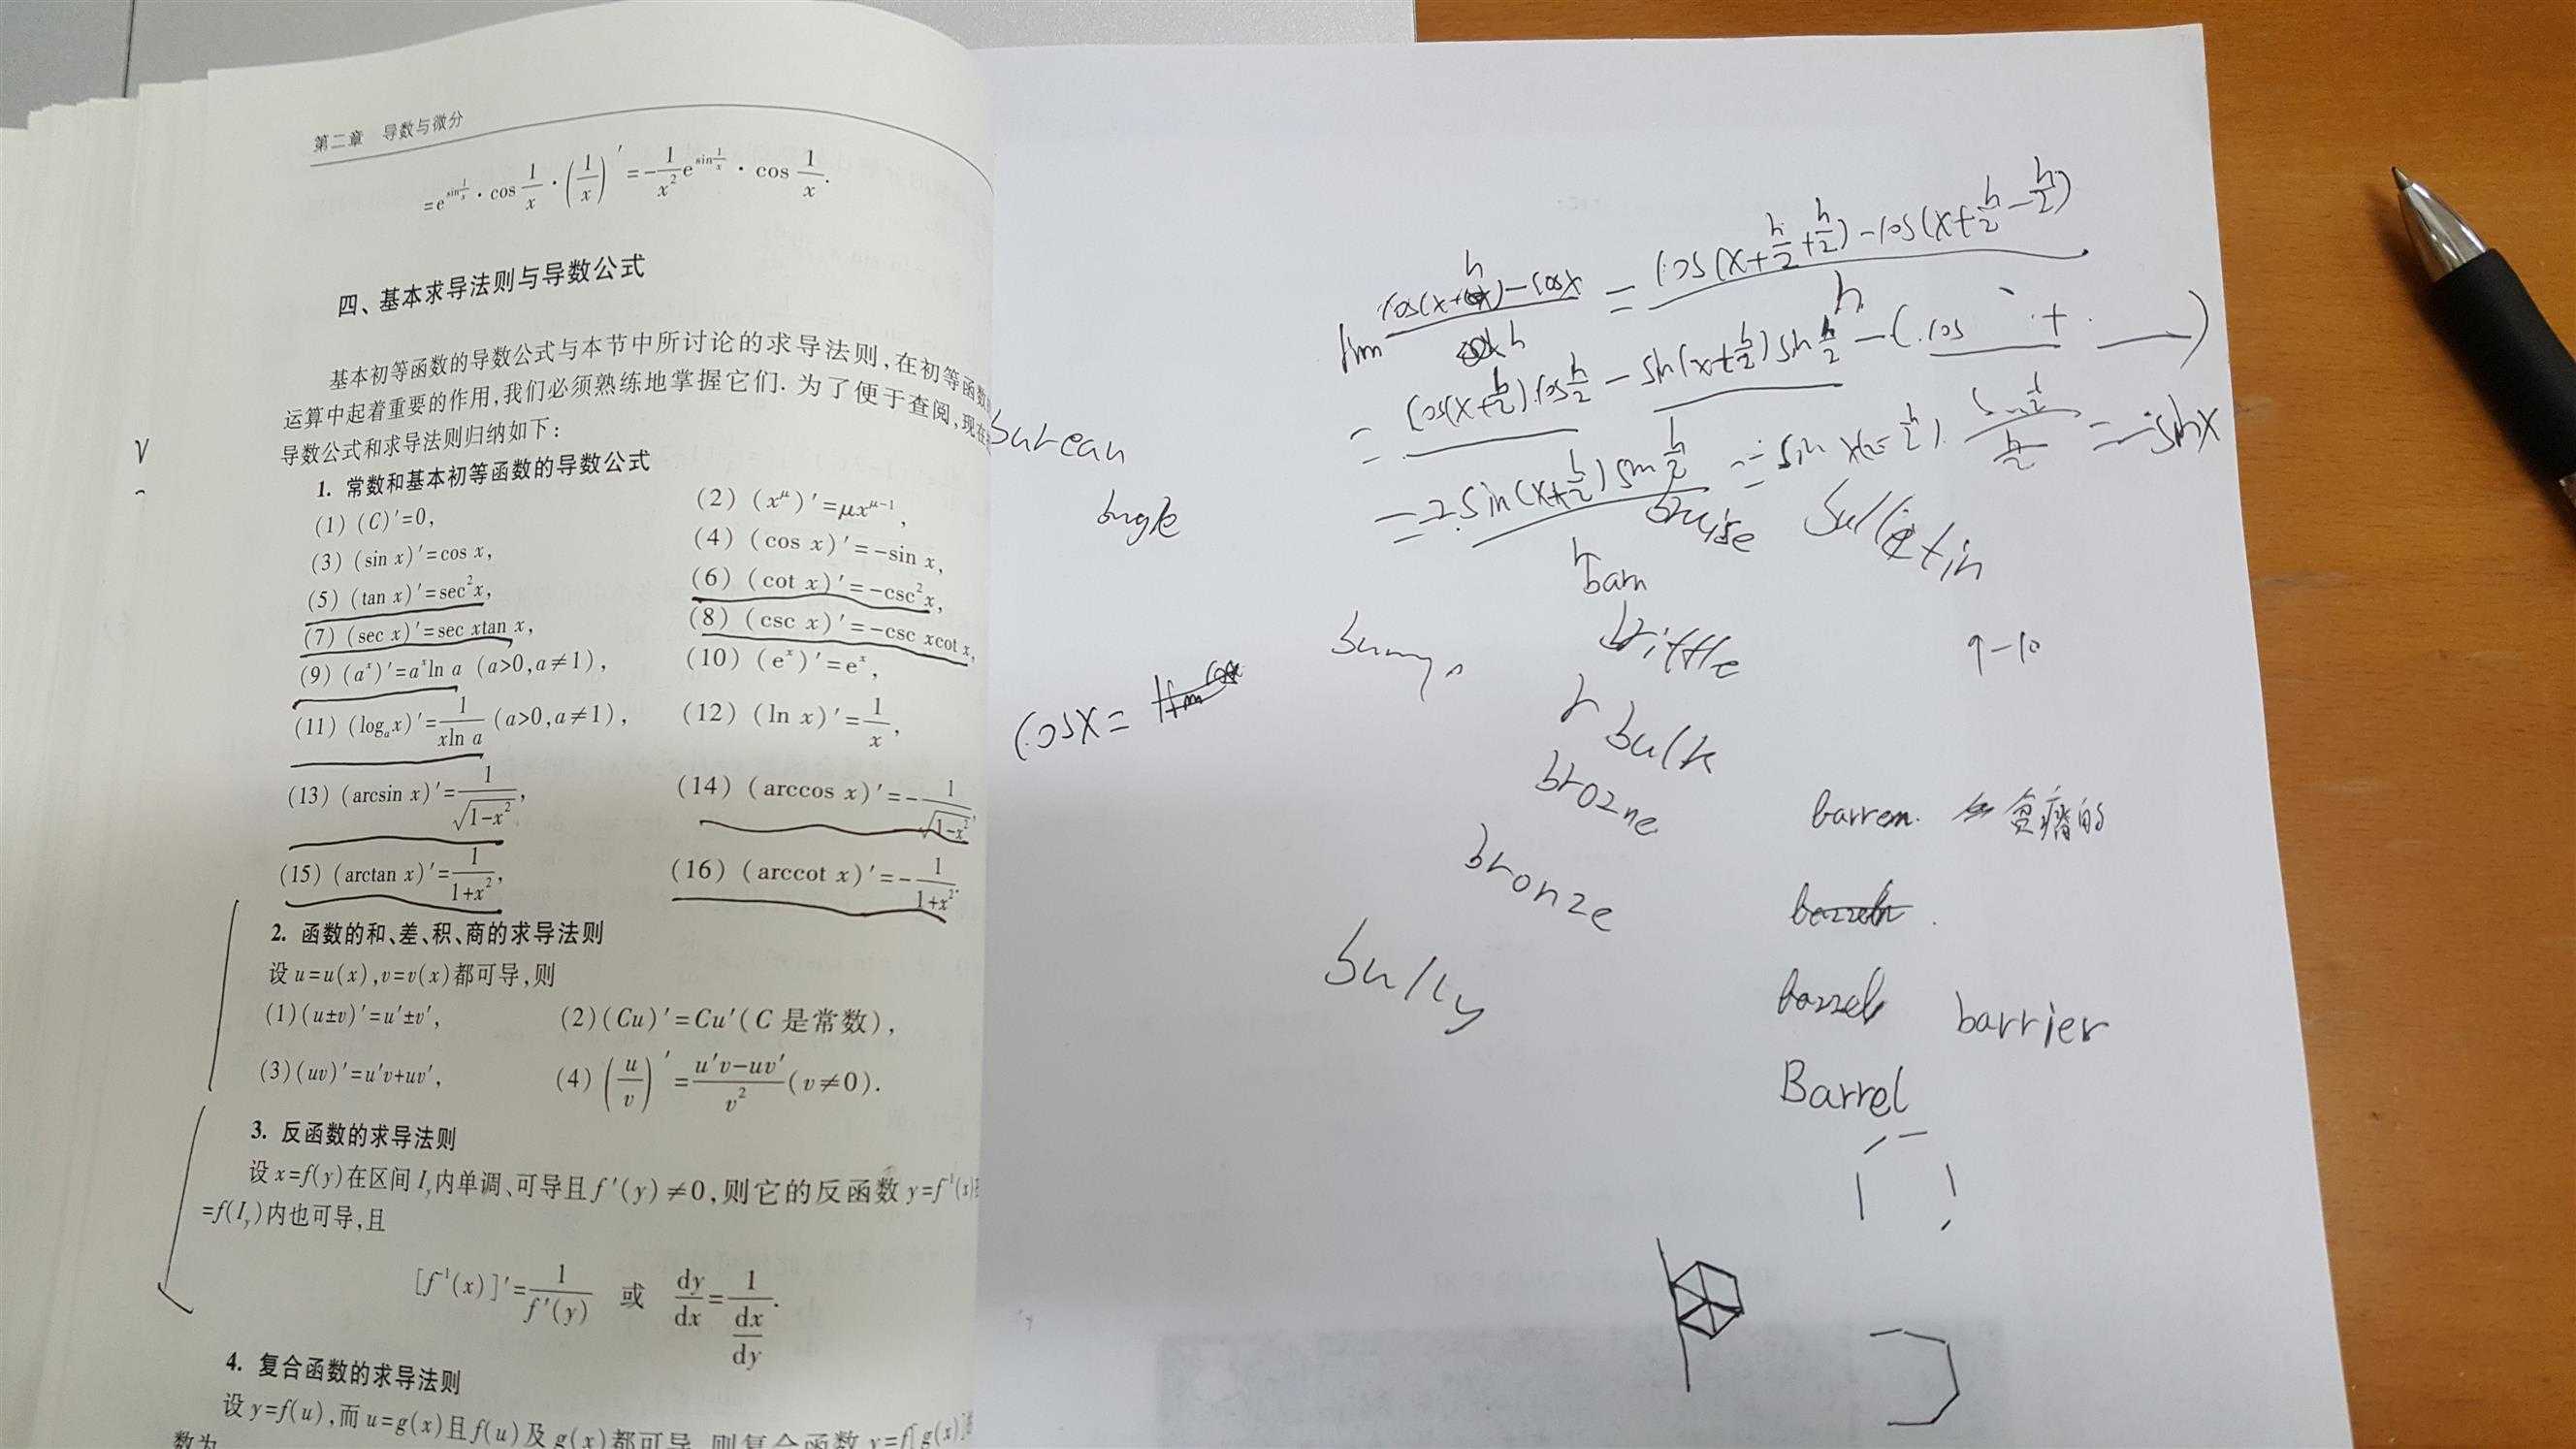 第二章 导数与微分
=e^{sin\frac{1}{x}}·cos\frac{1}{x}·(\frac{1}{x})′=-\frac{1}{x^2}e^{sin\frac{1}{x}}·cos\frac{1}{x}.
四、基本求导法则与导数公式
基本初等函数的导数公式与本节中所讨论的求导法则,在初等函数
运算中起着重要的作用,我们必须熟练地掌握它们. 为了便于查阅,现在
导数公式和求导法则归纳如下:
1. 常数和基本初等函数的导数公式
(1) (C)′=0, (2) (x^μ)′=μx^{μ-1},
(3) (sin x)′=cos x, (4) (cos x)′=-sin x,
(5) (tan x)′=sec²x, (6) (cot x)′=-csc²x,
(7) (sec x)′=sec xtan x, (8) (csc x)′=-csc xcot x,
(9) (a^x)′=a^x ln a (a>0,a≠1), (10) (e^x)′=e^x,
(11) (log_a x)′=\frac{1}{xln a} (a>0,a≠1), (12) (ln x)′=\frac{1}{x},
(13) (arcsin x)′=\frac{1}{\sqrt{1-x^2}}, (14) (arccos x)′=-\frac{1}{\sqrt{1-x^2}},
(15) (arctan x)′=\frac{1}{1+x^2}, (16) (arccot x)′=-\frac{1}{1+x^2}.
2. 函数的和、差、积、商的求导法则
设u=u(x),v=v(x)都可导,则
(1)(u±v)′=u′±v′, (2)(Cu)′=Cu′(C是常数),
(3)(uv)′=u′v+uv′, (4)(\frac{u}{v})′=\frac{u′v-uv′}{v^2}(v≠0).
3. 反函数的求导法则
设x=f(y)在区间I_y内单调、可导且f′(y)≠0,则它的反函数y=f^{-1}(x)
=f(I_y)内也可导,且
[f^{-1}(x)]′=\frac{1}{f′(y)} 或 \frac{dy}{dx}=\frac{1}{\frac{dx}{dy}}.
4. 复合函数的求导法则
设y=f(u),而u=g(x)且f(u)及g(x)都可导,则复合函数y=f[g(x)]
数为
lim \frac{cos(x+h)-cosx}{h} = \frac{cos(x+\frac{h}{2}+\frac{h}{2})-cos(x+\frac{h}{2}-\frac{h}{2})}{h}
= cos(x+\frac{h}{2})cos\frac{h}{2} - sin(x+\frac{h}{2})sin\frac{h}{2} - (cos + )
= \frac{2 sin(x+\frac{h}{2}) sin\frac{h}{2}}{h} = -sinx
bureau
bugle
bruise
bulletin
barn
brittle
9-10
cosx = lim
bulk
brozne
bronze
barren 贫瘠的
bully
barrel
barrier
Barrel